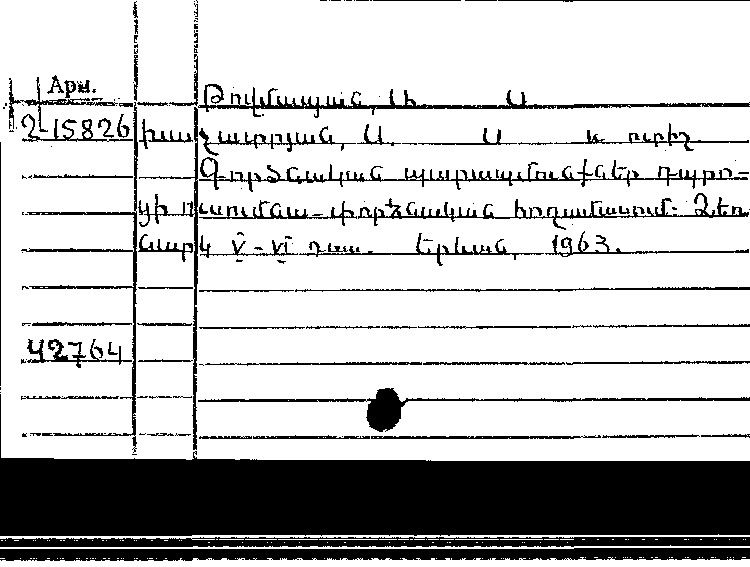 Арм.
Թովմասյան, Ս. Ա.
2-15826 խաչատրյան, Ա. Ա և ուրիշ
Գործնական պարապմունքներ դպրո-
ցի ուսումնա-փորձնական հողամասում. Ձեռ
նարկ V-VI դաս. Երևան, 1963.
42764